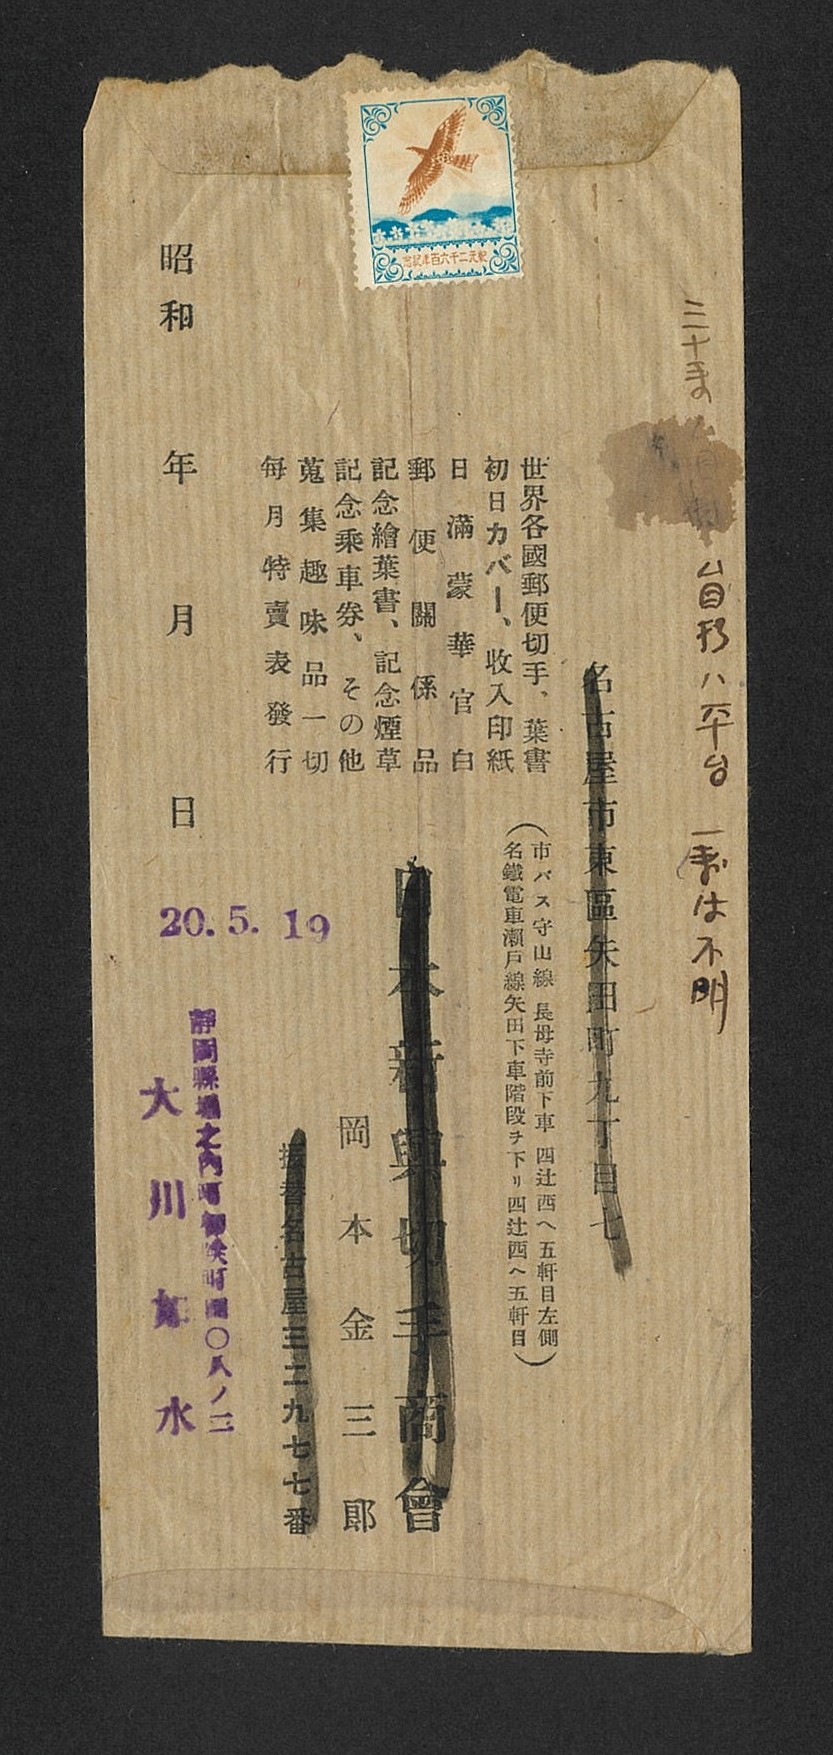 紀元二千六百年記念
台自形八平台
一東は不明
名古屋市東區矢田町九丁目七
(市バス守山線 長母寺前下車 四辻西へ五軒目左側
名鐵電車瀬戸線矢田下車階段ヲ下リ四辻西へ五軒目)
世界各國郵便切手、葉書
初日カバー、收入印紙
日滿蒙華官白
郵便關係品
記念繪葉書、記念煙草
記念乘車券、その他
蒐集趣味品一切
每月特賣表發行
日本新興切手商會
岡本金三郎
振替名古屋三二九七七番
昭和 年 月 日
20.5.19
靜岡縣堀之内町
大川如水